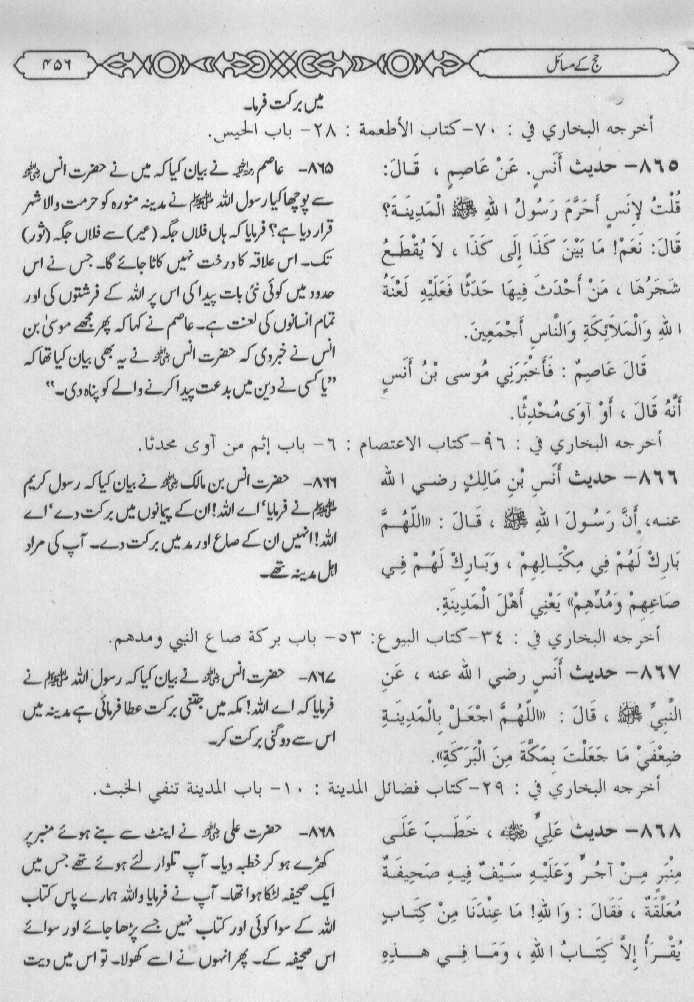 ۴۵۶
حج کے مسائل
میں برکت فرما۔
أخرجه البخاري في : ٧٠-كتاب الأطعمة : ٢٨- باب الحيس.
٨٦٥- حديث أَنَسٍ. عَنْ عَاصِمٍ ، قَالَ:
قُلْتُ لِأَنَسٍ أَحَرَّمَ رَسُولُ اللهِ ﷺ الْمَدِينَةَ؟
قَالَ: نَعَمْ! مَا بَيْنَ كَذَا إِلَى كَذَا ، لاَ يُقْطَعُ
شَجَرُهَا ، مَنْ أَحْدَثَ فِيهَا حَدَثًا فَعَلَيْهِ لَعْنَةُ
اللهِ وَالْمَلاَئِكَةِ وَالنَّاسِ أَجْمَعِينَ.
قَالَ عَاصِمٌ : فَأَخْبَرَنِي مُوسى بْنُ أَنَسٍ
أَنَّهُ قَالَ ، أَوْ آوَى مُحْدِثًا.
۸۶۵- عاصم ؓ نے بیان کیا کہ میں نے حضرت انس ؓ
سے پوچھا کیا رسول اللہ ﷺ نے مدینہ منورہ کو حرمت والا شہر
قرار دیا ہے؟ فرمایا کہ ہاں فلاں جگہ (عیر) سے فلاں جگہ (ثور)
تک۔ اس علاقہ کا درخت نہیں کاٹا جائے گا۔ جس نے اس
حدود میں کوئی نئی بات پیدا کی اس پر اللہ کے فرشتوں کی اور
تمام انسانوں کی لعنت ہے۔ عاصم نے کہا کہ پھر مجھے موسیٰ بن
انس نے خبر دی کہ حضرت انس ؓ نے یہ بھی بیان کیا تھا کہ
”یا کسی نے دین میں بدعت پیدا کرنے والے کو پناہ دی۔“
أخرجه البخاري في : ٩٦-كتاب الاعتصام : ٦- باب إثم من آوى محدثا.
٨٦٦- حديث أَنَسِ بْنِ مَالِكٍ رضي الله
عنه، أَنَّ رَسُولَ اللهِ ﷺ ، قَالَ : «اللّهُمَّ
بَارِكْ لَهُمْ فِي مِكْيَالِهِمْ ، وَبَارِكْ لَهُمْ فِي
صَاعِهِمْ وَمُدِّهِمْ» يَعْنِي أَهْلَ الْمَدِينَةِ.
۸۶۶- حضرت انس بن مالک ؓ نے بیان کیا کہ رسول کریم
ﷺ نے فرمایا ’اے اللہ! ان کے پیمانوں میں برکت دے‘ اے
اللہ! انہیں ان کے صاع اور مد میں برکت دے۔ آپ کی مراد
اہل مدینہ تھے۔
أخرجه البخاري في : ٣٤-كتاب البيوع: ٥٣- باب بركة صاع النبي ومدهم.
٨٦٧- حديث أَنَسٍ رضي الله عنه ، عَنِ
النَّبِيِّ ﷺ ، قَالَ : «اللّهُمَّ اجْعَلْ بِالْمَدِينَةِ
ضِعْفَيْ مَا جَعَلْتَ بِمَكَّةَ مِنَ الْبَرَكَةِ».
۸۶۷- حضرت انس ؓ نے بیان کیا کہ رسول اللہ ﷺ نے
فرمایا کہ اے اللہ! مکہ میں جتنی برکت عطا فرمائی ہے مدینہ میں
اس سے دوگنی برکت کر۔
أخرجه البخاري في : ٢٩-كتاب فضائل المدينة : ١٠- باب المدينة تنفي الخبث.
٨٦٨- حديث عَلِيٍّ ؓ ، خَطَبَ عَلَى
مِنْبَرٍ مِنْ آجُرٍّ وَعَلَيْهِ سَيْفٌ فِيهِ صَحِيفَةٌ
مُعَلَّقَةٌ ، فَقَالَ : وَاللهِ! مَا عِنْدَنَا مِنْ كِتَابٍ
يُقْرَأُ إِلاَّ كِتَابُ اللهِ ، وَمَا فِي هذِهِ
۸۶۸- حضرت علی ؓ نے اینٹ سے بنے ہوئے منبر پر
کھڑے ہو کر خطبہ دیا۔ آپ تلوار لئے ہوئے تھے جس میں
ایک صحیفہ لٹکا ہوا تھا۔ آپ نے فرمایا واللہ ہمارے پاس کتاب
اللہ کے سوا کوئی اور کتاب نہیں جسے پڑھا جائے اور سوائے
اس صحیفہ کے۔ پھر انہوں نے اسے کھولا۔ تو اس میں دیت